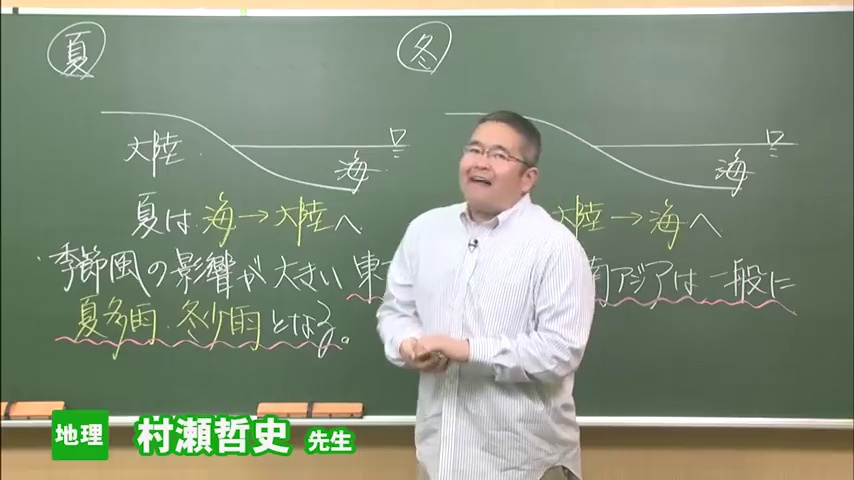 夏
冬
大陸
海
海
夏は 海→大陸へ
大陸→海へ
季節風の影響が大きい 東
南アジアは一般に
夏多雨・冬少雨となる。
地理 村瀬哲史 先生